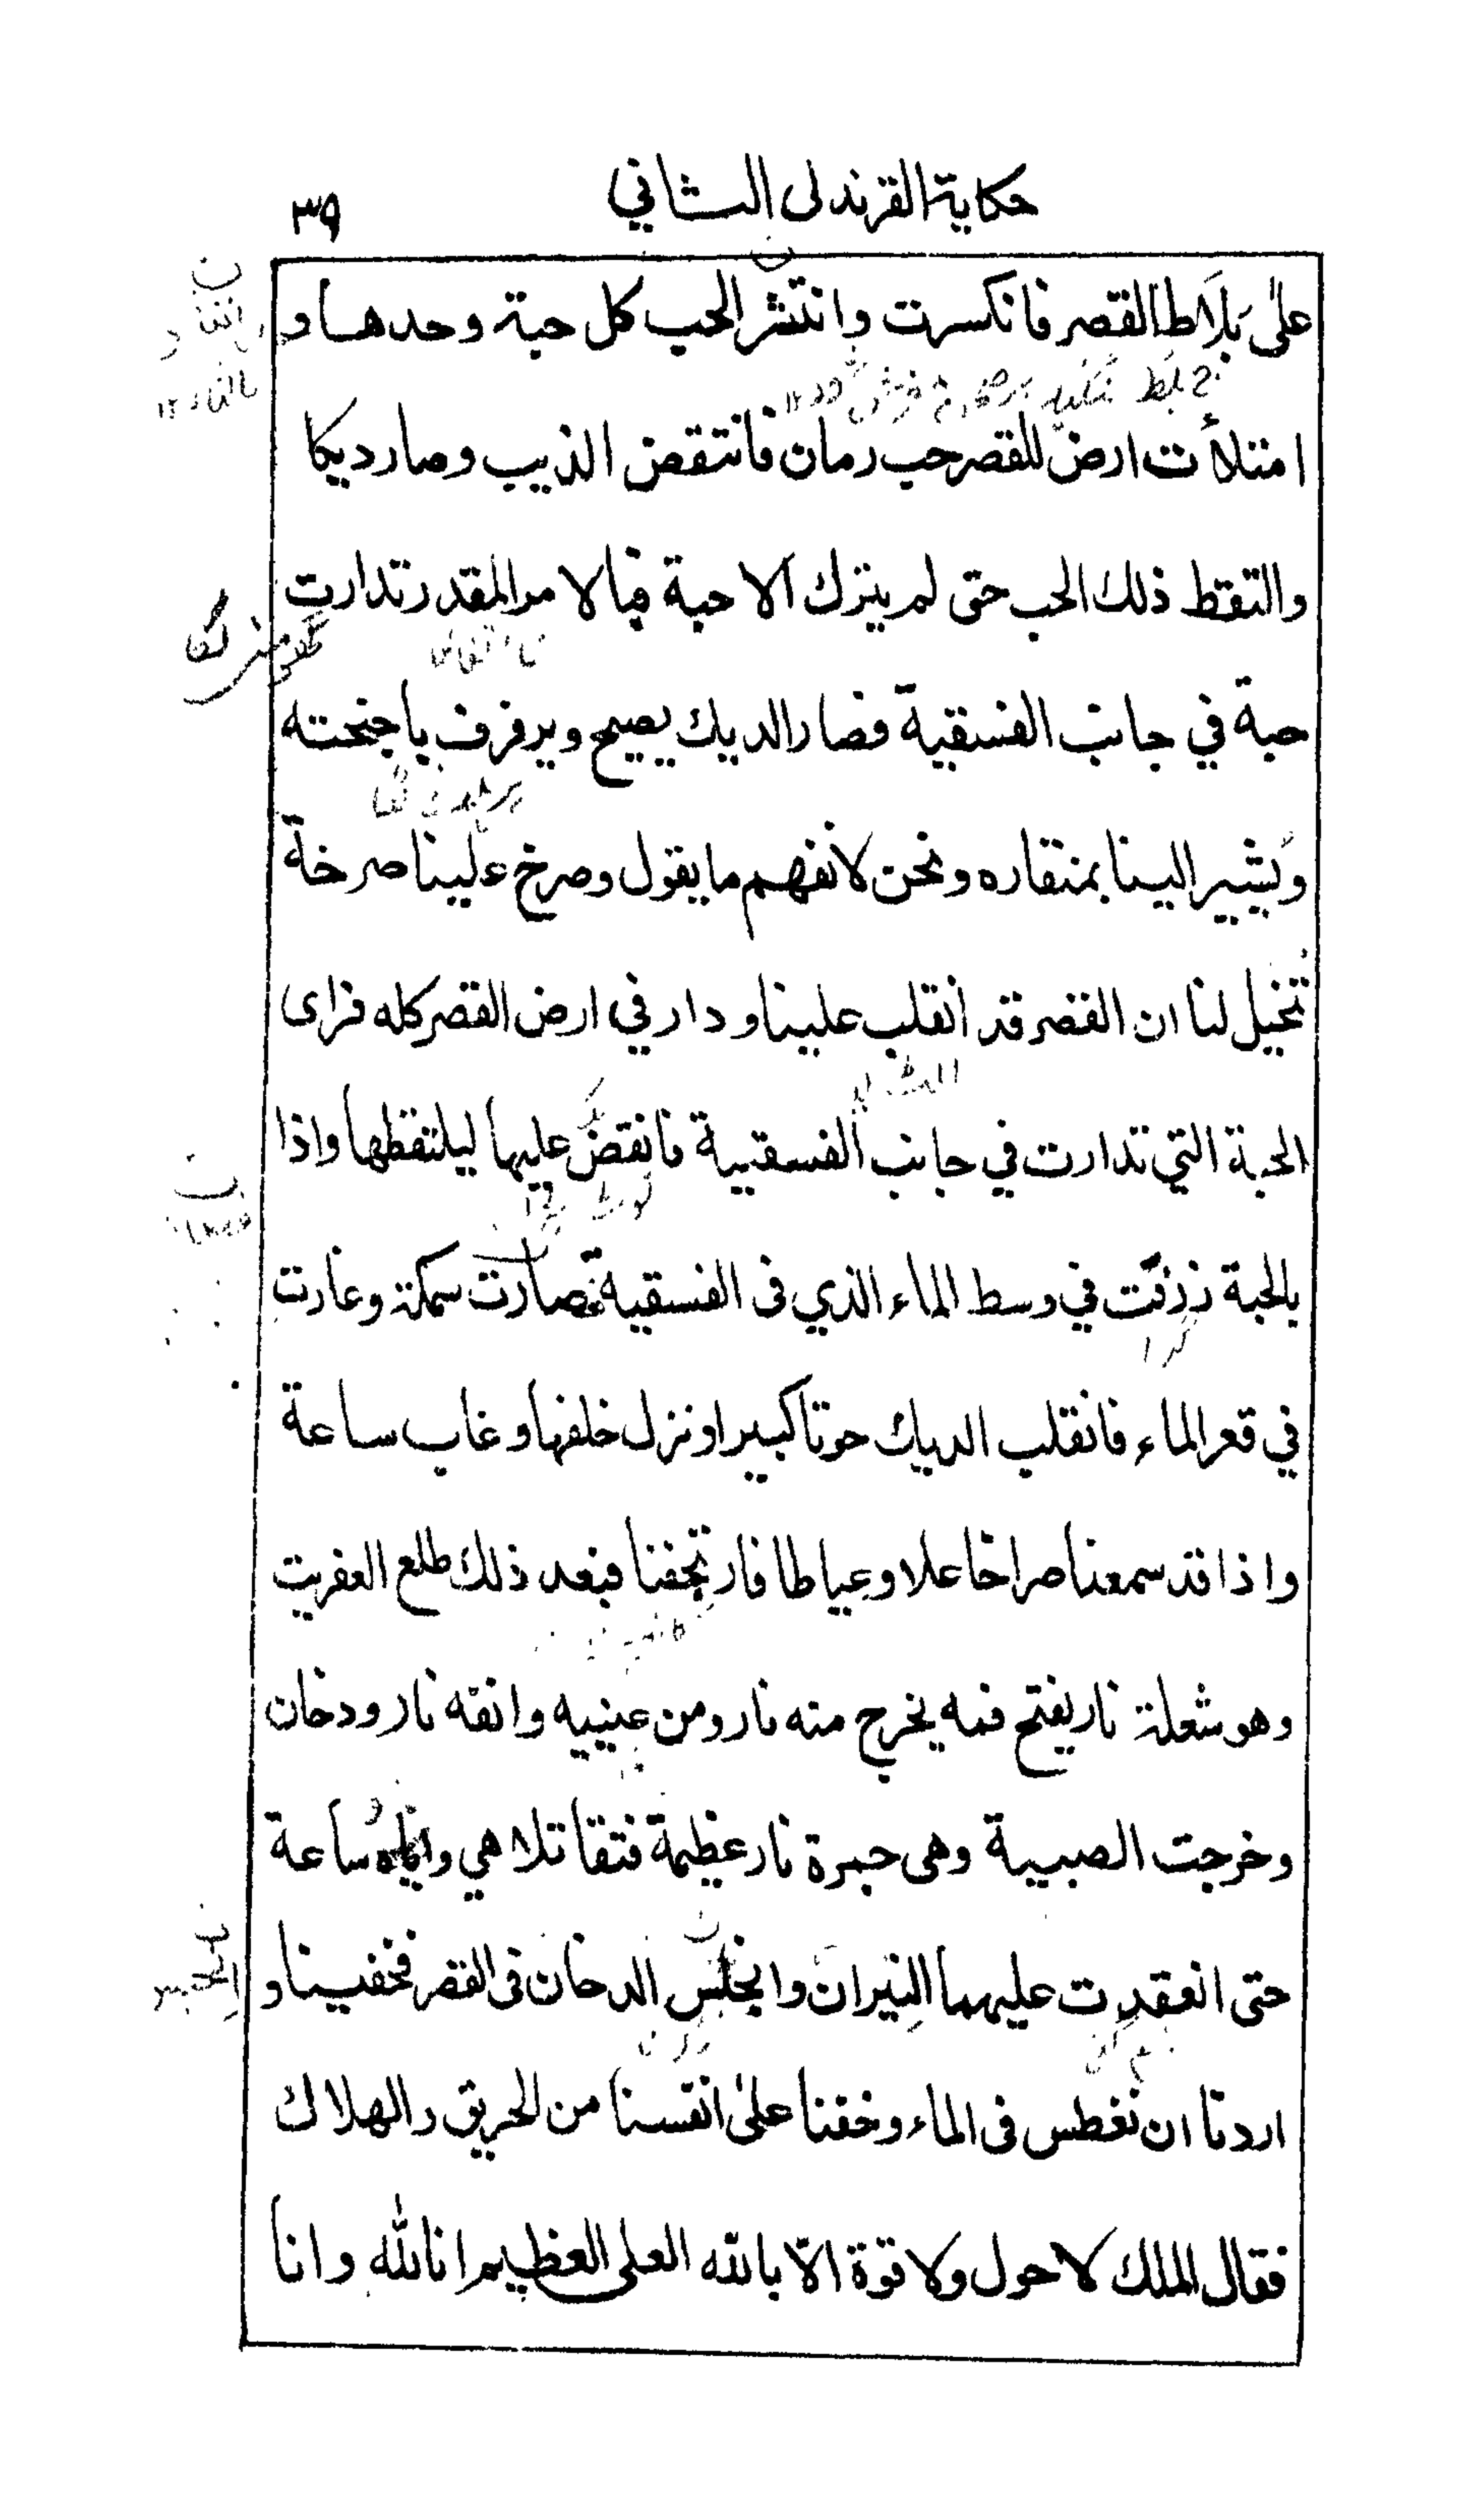 حكاية القرندلى الثاني ٣٩
على بَلاَط القصر فانكسرت وانتشر الحب كل حبة وحدها و
امتلأت ارض للقصر حب رمان فانتقض الذيب وصار ديكا
والتقط ذلك الحب حتى لم يترك الا حبة فبالامر المقدر تدارت
حبة في جانب الفسقية فصار الديك يصيح ويرفرف باجنحته
ويشير الينا بمنقاره ونحن لا نفهم ما يقول وصرخ علينا صرخة
تخيل لنا ان القصر قد انقلب علينا ودار في ارض القصر كله فراى
الحبة التي تدارت في جانب الفسقية فانقض عليها ليلتقطها واذا
بالحبة زرقت في وسط الماء الذي فى الفسقية فصارت سمكة وغارت
في قعر الماء فانقلب الديك حوتا كبيرا ونزل خلفها وغاب ساعة
واذا قد سمعنا صراخا علا وعياطا فارتجفنا فبعد ذلك طلع العفريت
وهو شعلة نار يفتح فمه يخرج منه نار ومن عينيه وانفه نار ودخان
وخرجت الصبية وهى جمرة نار عظيمة فتقاتلا هي واياه ساعة
حتى انعقدت عليهما النيران وانحبس الدخان فى القصر فخفينا و
اردنا ان نغطس فى الماء وخفنا على انفسنا من الحريق والهلاك
فقال الملك لا حول ولا قوة الّا بالله العلى العظيم انا لله وانا